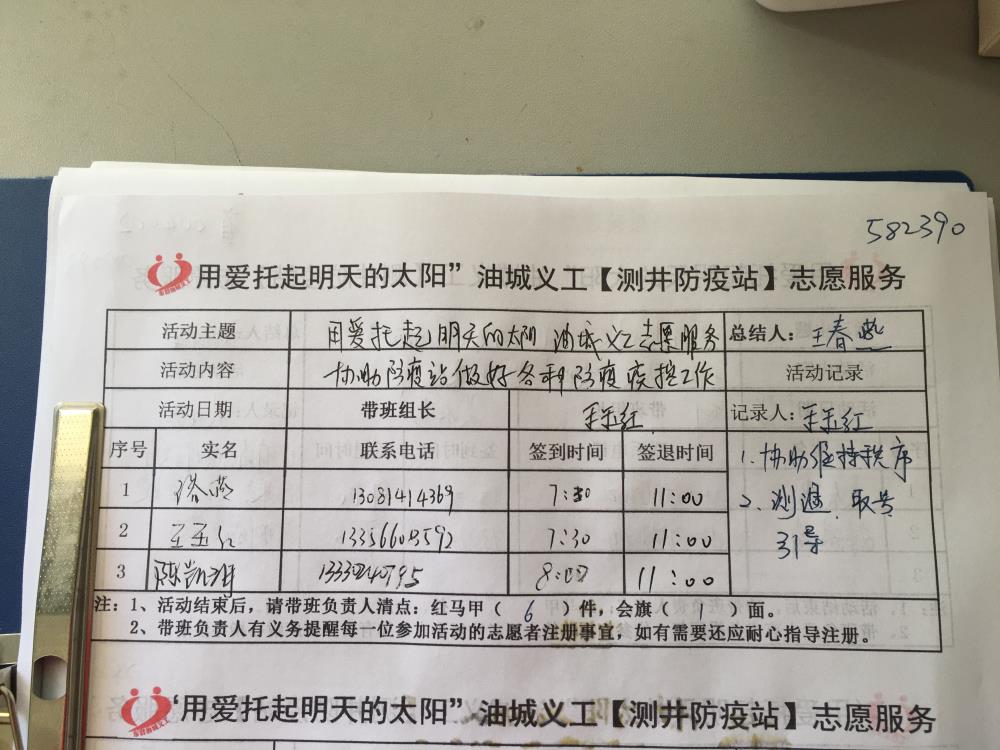 582390
用爱托起明天的太阳”油城义工【测井防疫站】志愿服务
活动主题 用爱托起明天的太阳 油城义工志愿服务 总结人：王春燕
活动内容 协助防疫站做好各和防疫疾控工作 活动记录
活动日期 带班组长 王玉红 记录人：王玉红
序号 实名 联系电话 签到时间 签退时间 1. 协助维持秩序
1 洛燕 13081414369 7:30 11:00 2、测温、取号
2 王玉红 13356605592 7:30 11:00 引导
3 8:00 11:00
注：1、活动结束后，请带班负责人清点：红马甲（ 6 ）件，会旗（ 1 ）面。
2、带班负责人有义务提醒每一位参加活动的志愿者注册事宜，如有需要还应耐心指导注册。
‘用爱托起明天的太阳”油城义工【测井防疫站】志愿服务